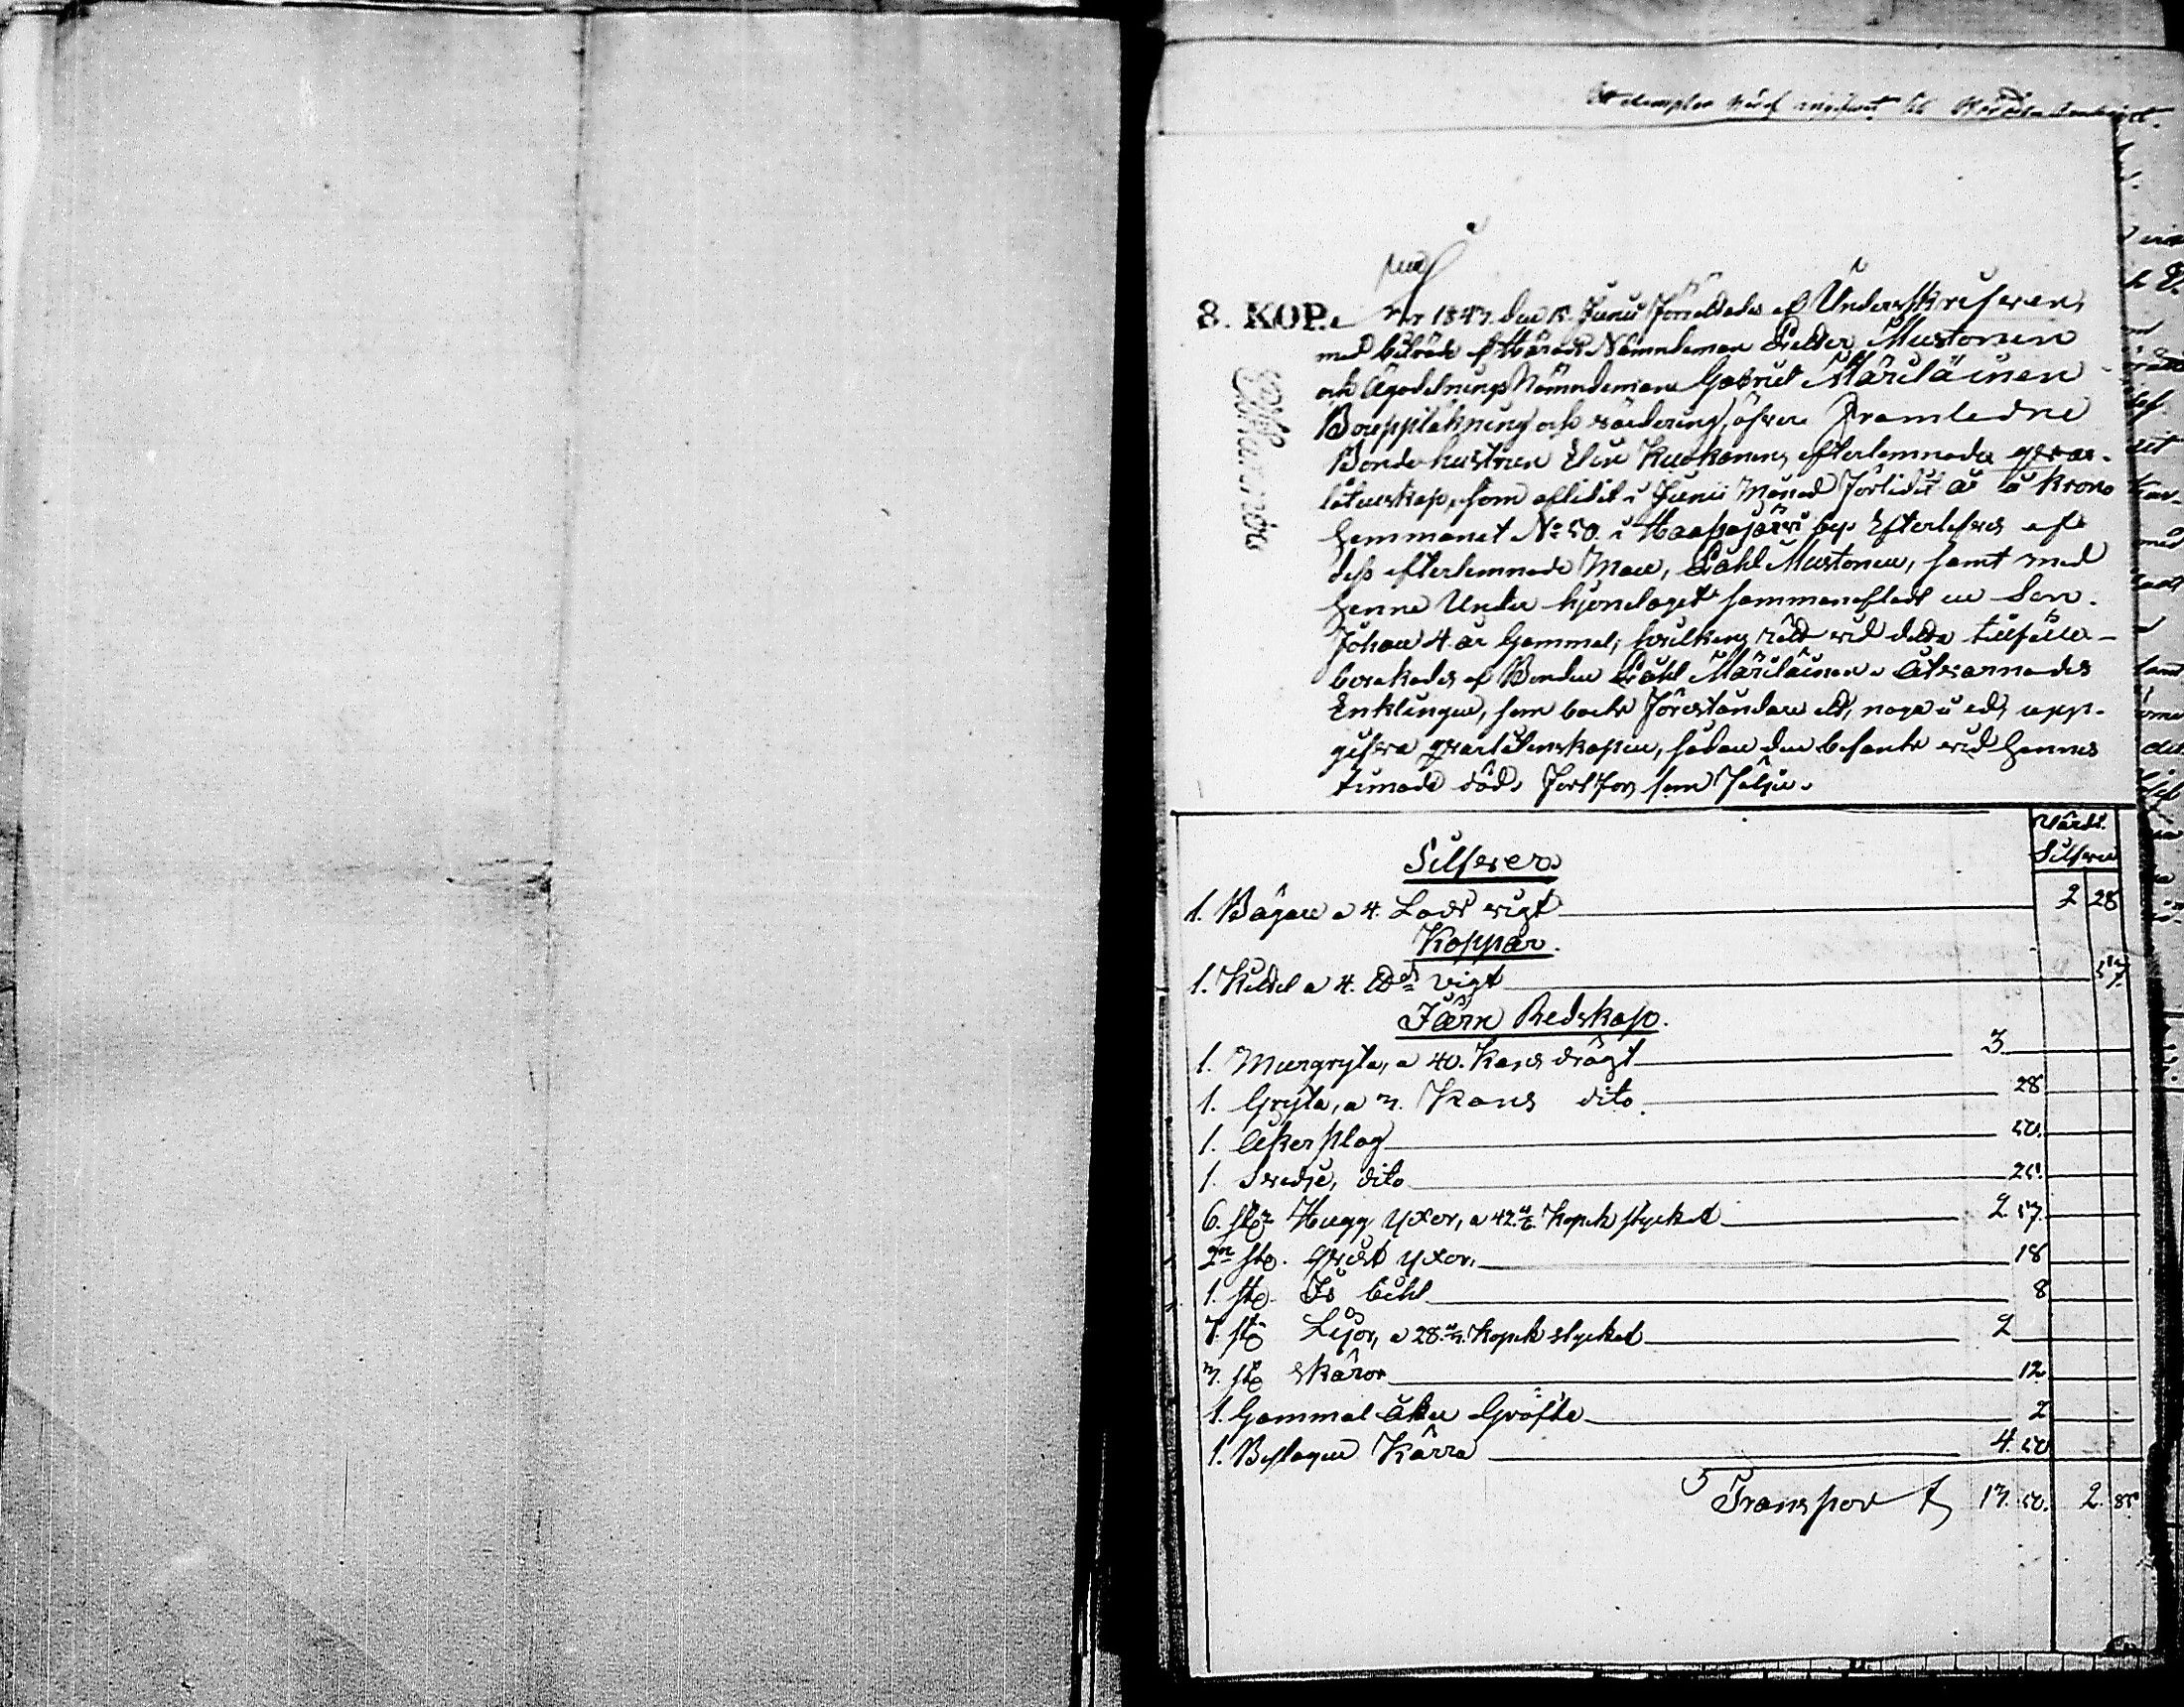 8. KOP. År 1847. den 15. Junii förrättades af Underskrifven,
med biträde af Härads Nämndeman Petter Mustonen
och Ägodelnings Nämndeman Gabriel Märiläinen
Bouppteckning och värdering, öfver framledne
Bondehustrun Elin Kuokanens efterlemnade qvar-
låtenskap, som aflidit i Junii Månad förlidit år å Krono
hemmanet No 50. i Haapajärvi by. Efterlefves af
dess efterlemnade Man, Påhl Mustonen, samt med
henne Under hjonelaget sammanaflade en Son.
Johan 4 år Gammal; hvilkens rätt vid detta tillfälle
bevakades af Bonden Påhl Märiläinen. Åtvarnades
Enklingen, som boets föreståndare att, noga å ed, upp-
gifva qvarlåtenskapen, sådan den befants vid hennes
timade död. Fortfors som följer.
Värde
Silfver
Silfver
1. Bägare a 4. Lods vigt 2 28
Koppar.
1. Kittel a 4. vigt 57
Järn Redskap.
1. Murgryta, a 40. Kans drägt 3
1. Gryta, a 3. Kans dito. 28
1. Åker plog 50.
1. Svedje, dito 25.
6. st. Hugg yxor, a 42 Kopek stycket 2 57.
2ne st. qvist yxor. 18
1. st. Is bihl 8
7. st. Lijor, a 28 Kopek stycket 2
3. st. skäror 12
1. Gammal åker Gräfta 2
1. Beslagen Kärra 4 50
Transport 13. 50. 2. 85